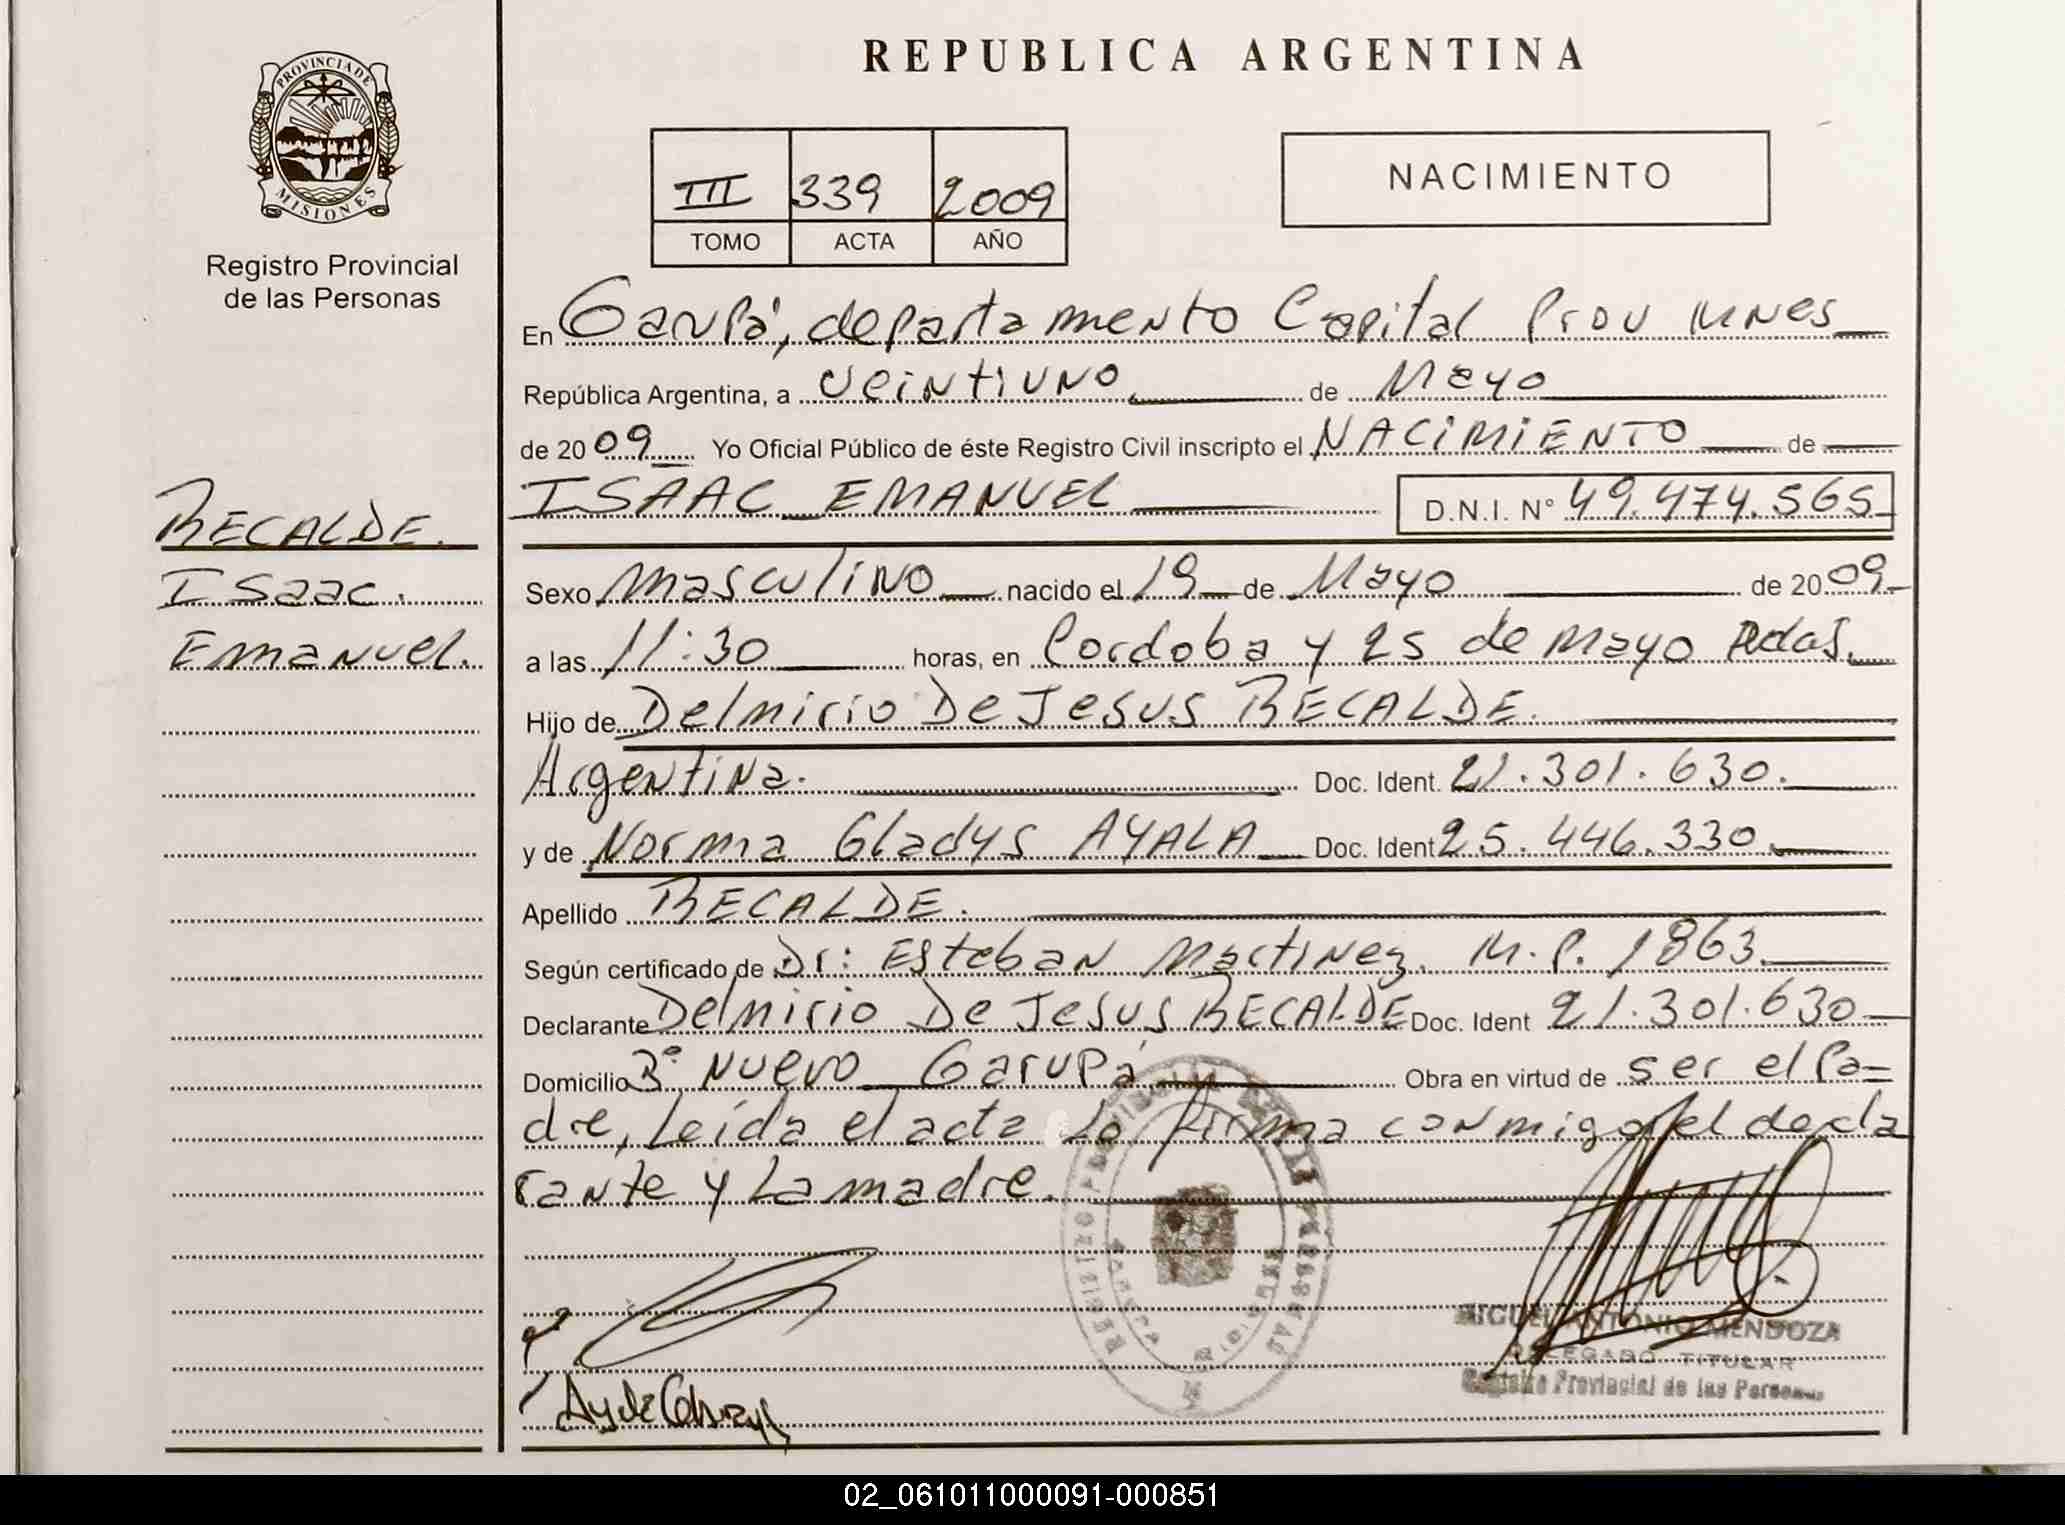 PROVINCIA DE
MISIONES
Registro Provincial
de las Personas
RECALDE.
Isaac.
Emanuel.
REPUBLICA ARGENTINA
III 339 2009
TOMO ACTA AÑO
NACIMIENTO
En Garupá, departamento Capital Prov Mnes
República Argentina, a veintiuno de Mayo
de 2009 Yo Oficial Público de éste Registro Civil inscripto el NACIMIENTO de
ISAAC EMANUEL D.N.I. N° 49.474.565
Sexo Masculino nacido el 19 de Mayo de 2009
a las 11:30 horas, en Cordoba y 25 de Mayo Pdas.
Hijo de Delmirio De Jesus RECALDE.
Argentina. Doc. Ident. 21.301.630.
y de Norma Gladys AYALA Doc. Ident 25.446.330.
Apellido RECALDE.
Según certificado de Dr: Esteban Martinez. M.P. 1863.
Declarante Delmirio De Jesus RECALDE Doc. Ident 21.301.630
Domicilio B° Nuevo Garupá Obra en virtud de ser el Pa-
dre, Leída el acta La firma conmigo el decla
rante y La madre.
REGISTRO PROVINCIAL DE LAS PERSONAS
MIGUEL ANTONIO MENDOZA
DELEGADO TITULAR
Registro Provincial de las Personas
02_061011000091-000851